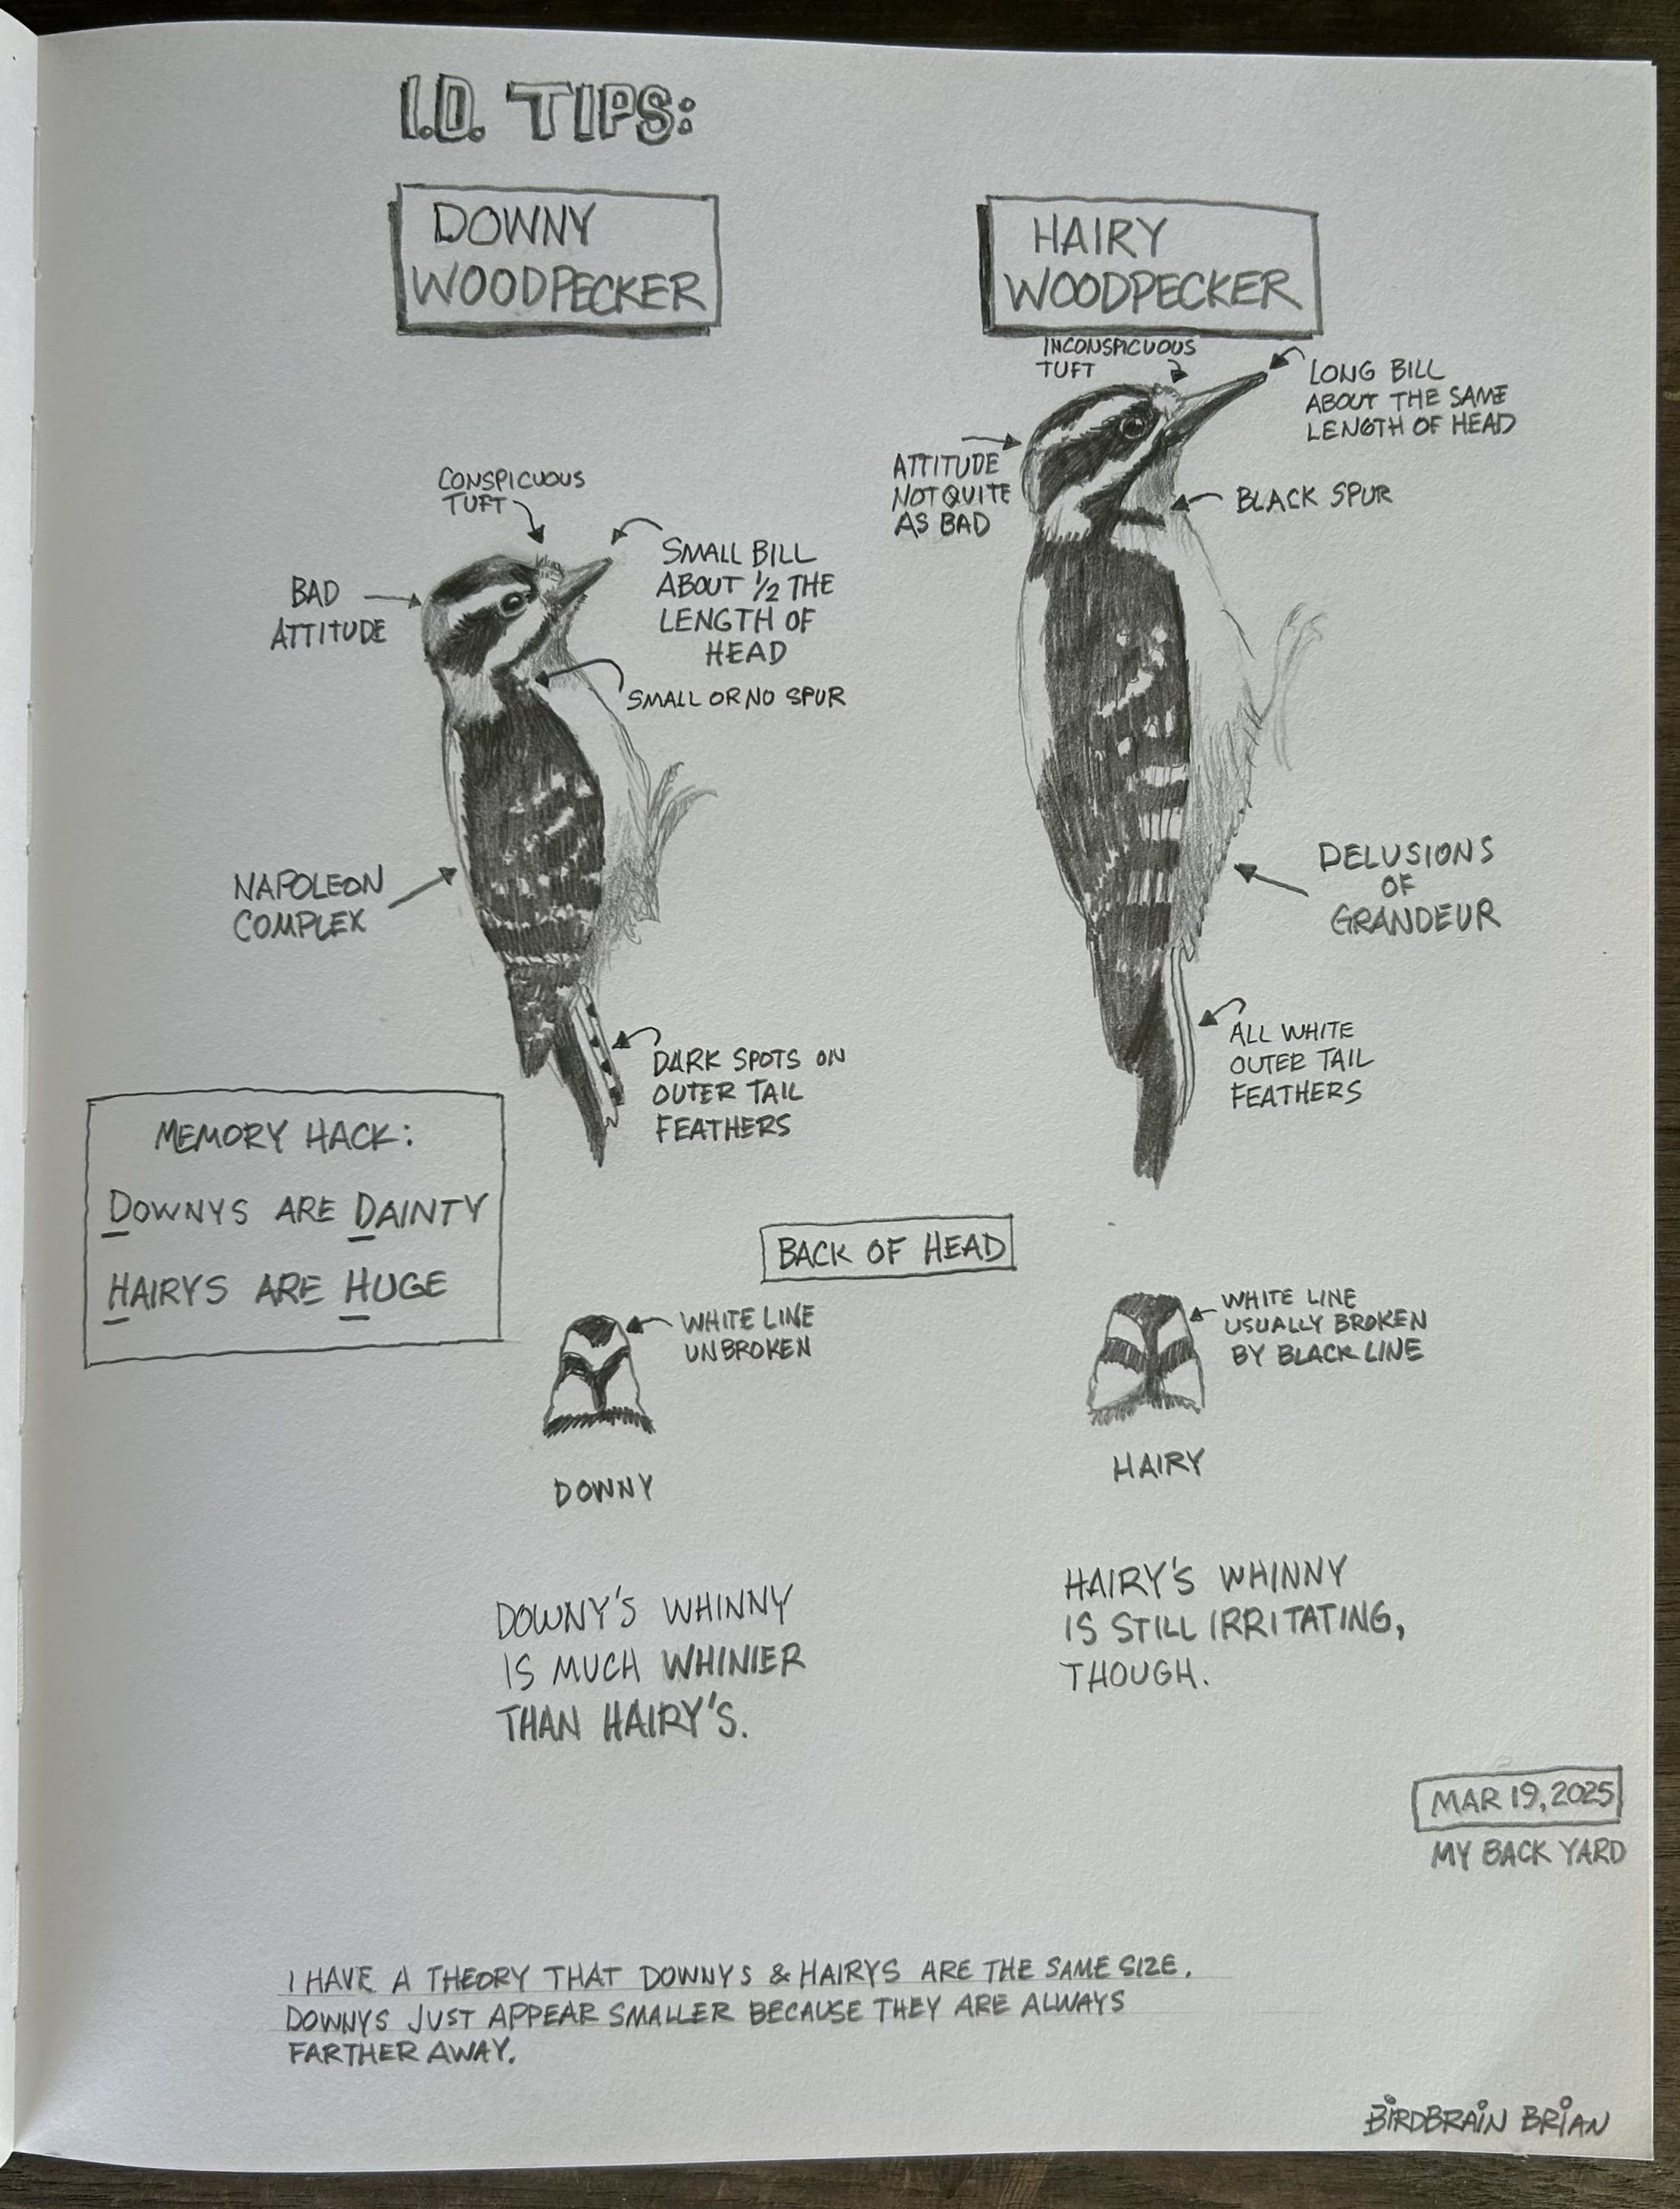 I.D. TIPS:
DOWNY
WOODPECKER
CONSPICUOUS
TUFT
BAD
ATTITUDE
SMALL BILL
ABOUT 1/2 THE
LENGTH OF
HEAD
SMALL OR NO SPUR
NAPOLEON
COMPLEX
DARK SPOTS ON
OUTER TAIL
FEATHERS
HAIRY
WOODPECKER
INCONSPICUOUS
TUFT
LONG BILL
ABOUT THE SAME
LENGTH OF HEAD
ATTITUDE
NOT QUITE
AS BAD
BLACK SPUR
DELUSIONS
OF
GRANDEUR
ALL WHITE
OUTER TAIL
FEATHERS
MEMORY HACK:
DOWNYS ARE DAINTY
HAIRYS ARE HUGE
BACK OF HEAD
WHITE LINE
UNBROKEN
DOWNY
WHITE LINE
USUALLY BROKEN
BY BLACK LINE
HAIRY
DOWNY'S WHINNY
IS MUCH WHINIER
THAN HAIRY'S.
HAIRY'S WHINNY
IS STILL IRRITATING,
THOUGH.
MAR 19, 2025
MY BACK YARD
I HAVE A THEORY THAT DOWNYS & HAIRYS ARE THE SAME SIZE.
DOWNYS JUST APPEAR SMALLER BECAUSE THEY ARE ALWAYS
FARTHER AWAY.
BIRDBRAIN BRIAN